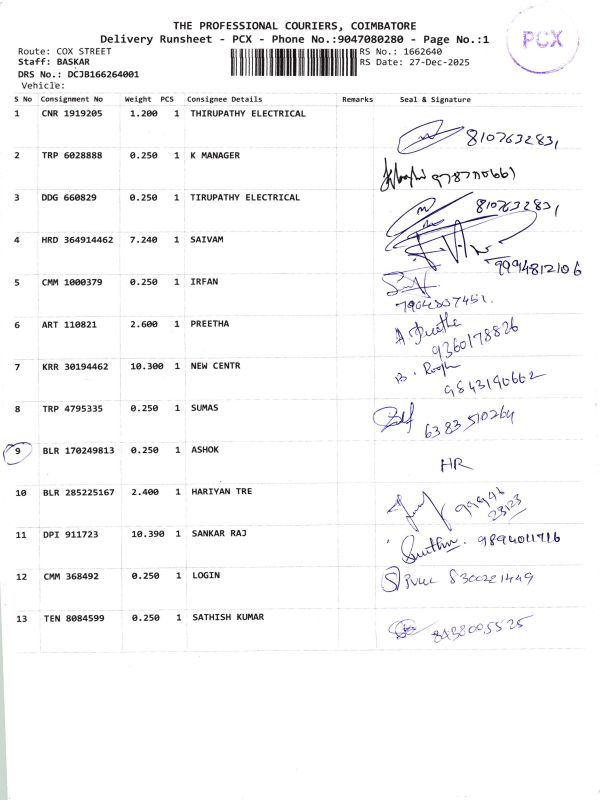 THE PROFESSIONAL COURIERS, COIMBATORE
Delivery Runsheet - PCX - Phone No.:9047080280 - Page No.:1
PCX
Route: COX STREET
RS No.: 1662640
Staff: BASKAR
RS Date: 27-Dec-2025
DRS No.: DCJB166264001
Vehicle:
S No Consignment No Weight PCS Consignee Details Remarks Seal & Signature
1 CNR 1919205 1.200 1 THIRUPATHY ELECTRICAL
8107632831
2 TRP 6028888 0.250 1 K MANAGER
9787710661
3 DDG 660829 0.250 1 TIRUPATHY ELECTRICAL
8107632831
4 HRD 364914462 7.240 1 SAIVAM
9994812106
5 CMM 1000379 0.250 1 IRFAN
7904807451.
6 ART 110821 2.600 1 PREETHA
A Preetha
9360178826
7 KRR 30194462 10.300 1 NEW CENTR
B.
9843190662
8 TRP 4795335 0.250 1 SUMAS
6383510264
9 BLR 170249813 0.250 1 ASHOK
HR
10 BLR 285225167 2.400 1 HARIYAN TRE
99994
23123
11 DPI 911723 10.390 1 SANKAR RAJ
9894011716
12 CMM 368492 0.250 1 LOGIN
8300221449
13 TEN 8084599 0.250 1 SATHISH KUMAR
8438005525